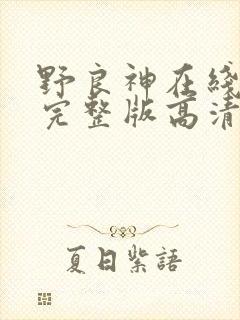 野良神在綫
完整版高清
夏日紫語